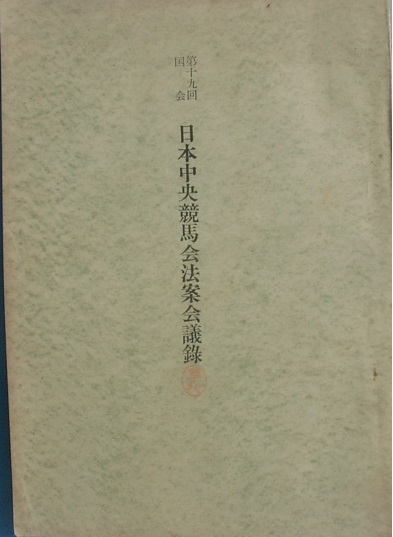 第十九回
国会
日本中央競馬会法案会議錄